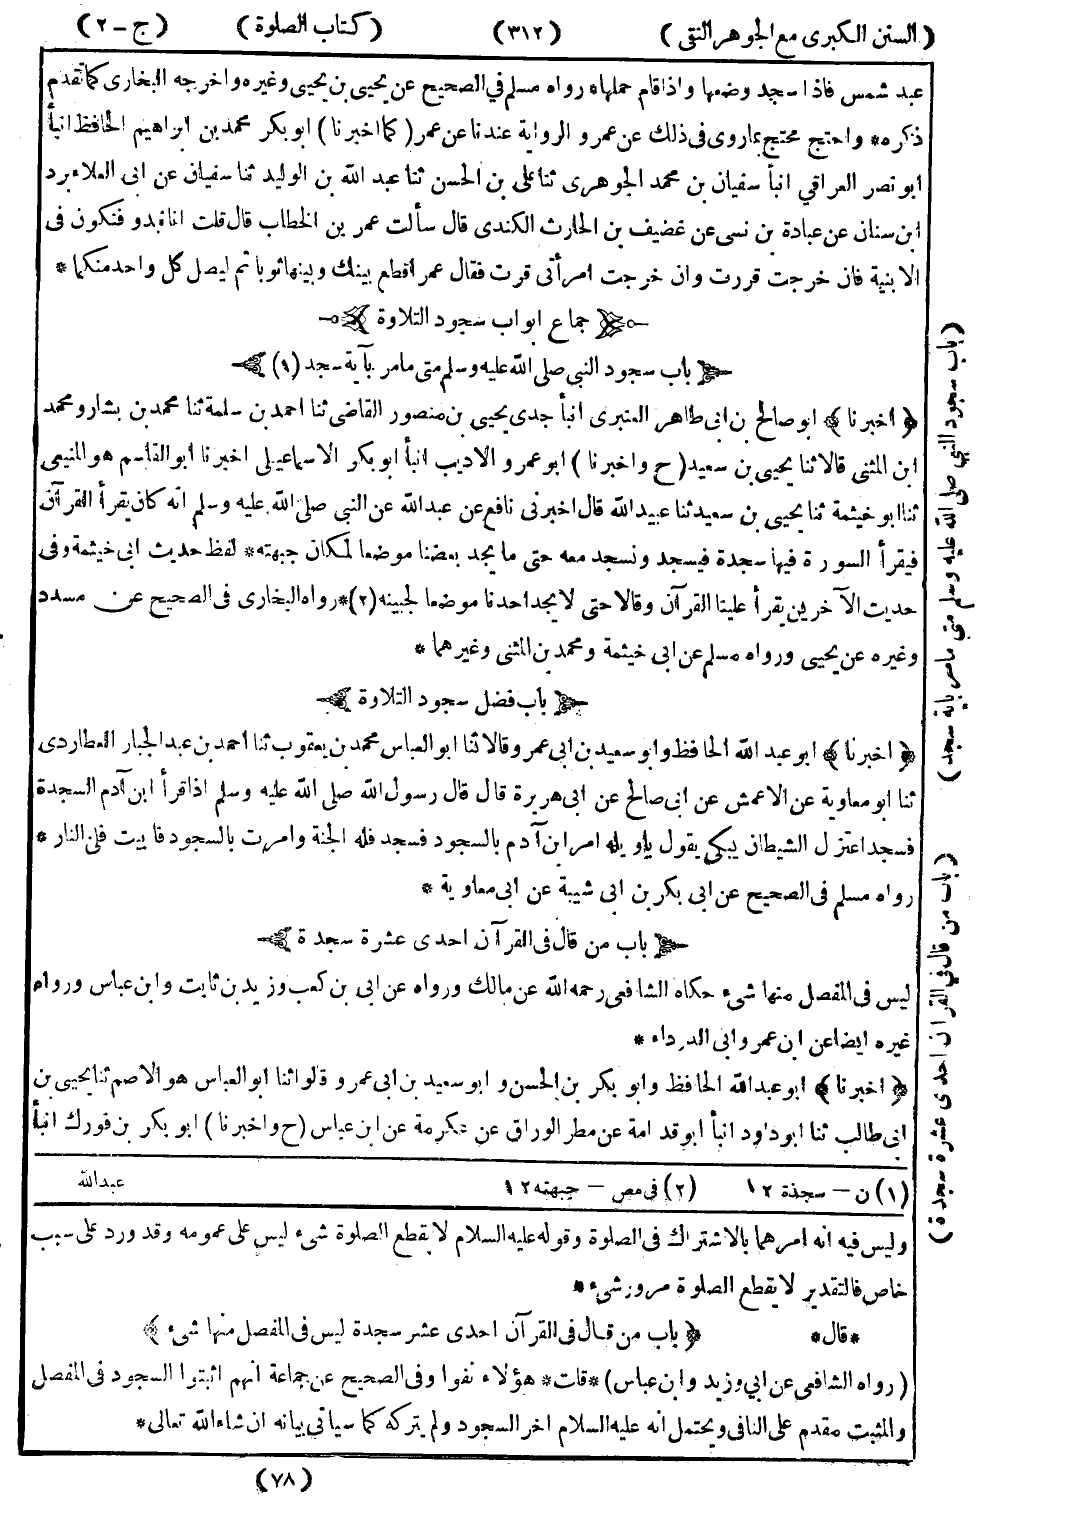 (السنن الكبرى مع الجوهر النقى) (٣١٢) (كتاب الصلوة) (ج - ٢)
عبد شمس فاذا سجد وضعها واذا قام حملها* رواه مسلم في الصحيح عن يحيى بن يحيى وغيره واخرجه البخارى كما تقدم
ذكره* واحتج محتج بماروى فى ذلك عن عمر و الرواية عندنا عن عمر (كما اخبرنا) ابوبكر محمد بن ابراهيم الحافظ انبأ
ابو نصر العراقي انبأ سفيان بن محمد الجوهرى ثنا على بن الحسن ثنا عبد الله بن الوليد ثنا سفيان عن ابى العلاء برد
ابن سنان عن عبادة بن نسى عن غضيف بن الحارث الكندى قال سألت عمر بن الخطاب قال قلت انا نبدو فنكون فى
الابنية فان خرجت قررت وان خرجت امرأتى قرت فقال عمر اقطع بينك وبينها ثوبا ثم ليصل كل واحد منكما *
جماع ابواب سجود التلاوة
باب سجود النبي صلى الله عليه وسلم متى مامر بآية سجد (١)
﴿ اخبرنا ﴾ ابو صالح بن ابى طاهر العنبرى انبأ جدى يحيى بن منصور القاضى ثنا احمد بن سلمة ثنا محمد بن بشار ومحمد
ابن المثنى قالا ثنا يحيى بن سعيد (ح واخبرنا) ابو عمرو الاديب انبأ ابو بكر الاسماعيلى اخبرنا ابو القاسم هو المنيعى
ثنا ابو خيثمة ثنا يحيى بن سعيد ثنا عبيد الله قال اخبرنى نافع عن عبدالله عن النبى صلى الله عليه وسلم انه كان يقرأ القرآن
فيقرأ السورة فيها سجدة فيسجد ونسجد معه حتى ما يجد بعضنا موضعا لمكان جبهته* لفظ حديث ابى خيثمة وفى
حديث الآخرين يقرأ علينا القرآن وقالا حتى لا يجد احدنا موضعا لجبينه (٢)* رواه البخارى فى الصحيح عن مسدد
وغيره عن يحيى ورواه مسلم عن ابى خيثمة ومحمد بن المثنى وغيرهما *
باب فضل سجود التلاوة
﴿ اخبرنا ﴾ ابو عبد الله الحافظ وابو سعيد بن ابى عمر وقالا ثنا ابو العباس محمد بن يعقوب ثنا احمد بن عبد الجبار العطاردى
ثنا ابو معاوية عن الاعمش عن ابى صالح عن ابى هريرة قال قال رسول الله صلى الله عليه وسلم اذا قرأ ابن آدم السجدة
فسجد اعتزل الشيطان يبكى يقول ياويله امر ابن آدم بالسجود فسجد فله الجنة وامرت بالسجود فابيت فلى النار *
رواه مسلم فى الصحيح عن ابى بكر بن ابى شيبة عن ابى معاوية *
باب من قال فى القرآن احدى عشرة سجدة
ليس فى المفصل منها شىء حكاه الشافعى رحمه الله عن مالك ورواه عن ابى بن كعب وزيد بن ثابت وابن عباس ورواه
غيره ايضا عن ابن عمر وابى الدرداء *
﴿ اخبرنا ﴾ ابو عبدالله الحافظ وابو بكر بن الحسن و ابو سعيد بن ابى عمرو قالوا ثنا ابو العباس هو الاصم ثنا يحيى بن
ابى طالب ثنا ابو داود انبأ ابو قدامة عن مطر الوراق عن عكرمة عن ابن عباس (ح واخبرنا) ابو بكر بن فورك انبأ
عبدالله
(١) ن - سجدة ١٢ (٢) فى مص - جبهته ١٢
وليس فيه انه امرهما بالاشتراك فى الصلوة وقوله عليه السلام لا يقطع الصلوة شىء ليس على عمومه وقد ورد على سبب
خاص فالتقدير لا يقطع الصلوة مرور شىء *
*قال* ﴿ باب من قال فى القرآن احدى عشر سجدة ليس فى المفصل منها شىء ﴾
(رواه الشافعى عن ابي وزيد وابن عباس) *قلت* هؤلاء نفوا وفى الصحيح عن جماعة انهم اثبتوا السجود فى المفصل
والمثبت مقدم على النافى ويحتمل انه عليه السلام اخر السجود ولم يتركه كما سياتى بيانه ان شاء الله تعالى*
(٧٨)
(باب سجود النبي صلى الله عليه وسلم متى مامر بآية سجد)
(باب من قال فى القرآن احدى عشرة سجدة)